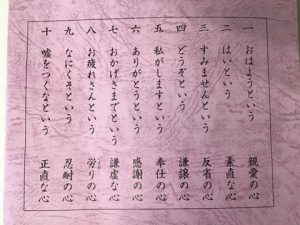 一 おはようという 親愛の心
二 はいという 素直な心
三 すみませんという 反省の心
四 どうぞという 謙譲の心
五 私がしますという 奉仕の心
六 ありがとうという 感謝の心
七 おかげさまでという 謙虚な心
八 お疲れさんという 労りの心
九 なにくそという 忍耐の心
十 嘘をつくなという 正直な心